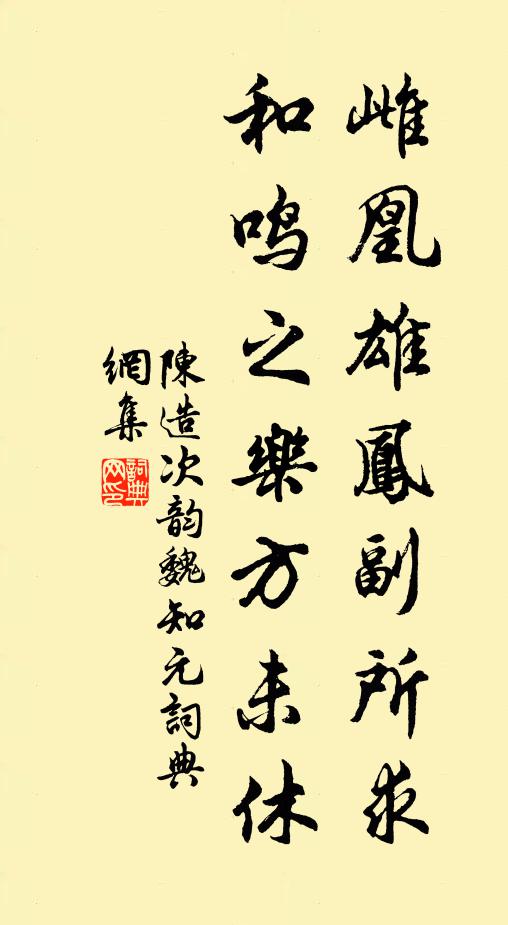 雌凰雄鳳副所求
和鸣之樂方未休
陳造次韵魏知元詞典
網集
詞典
网印